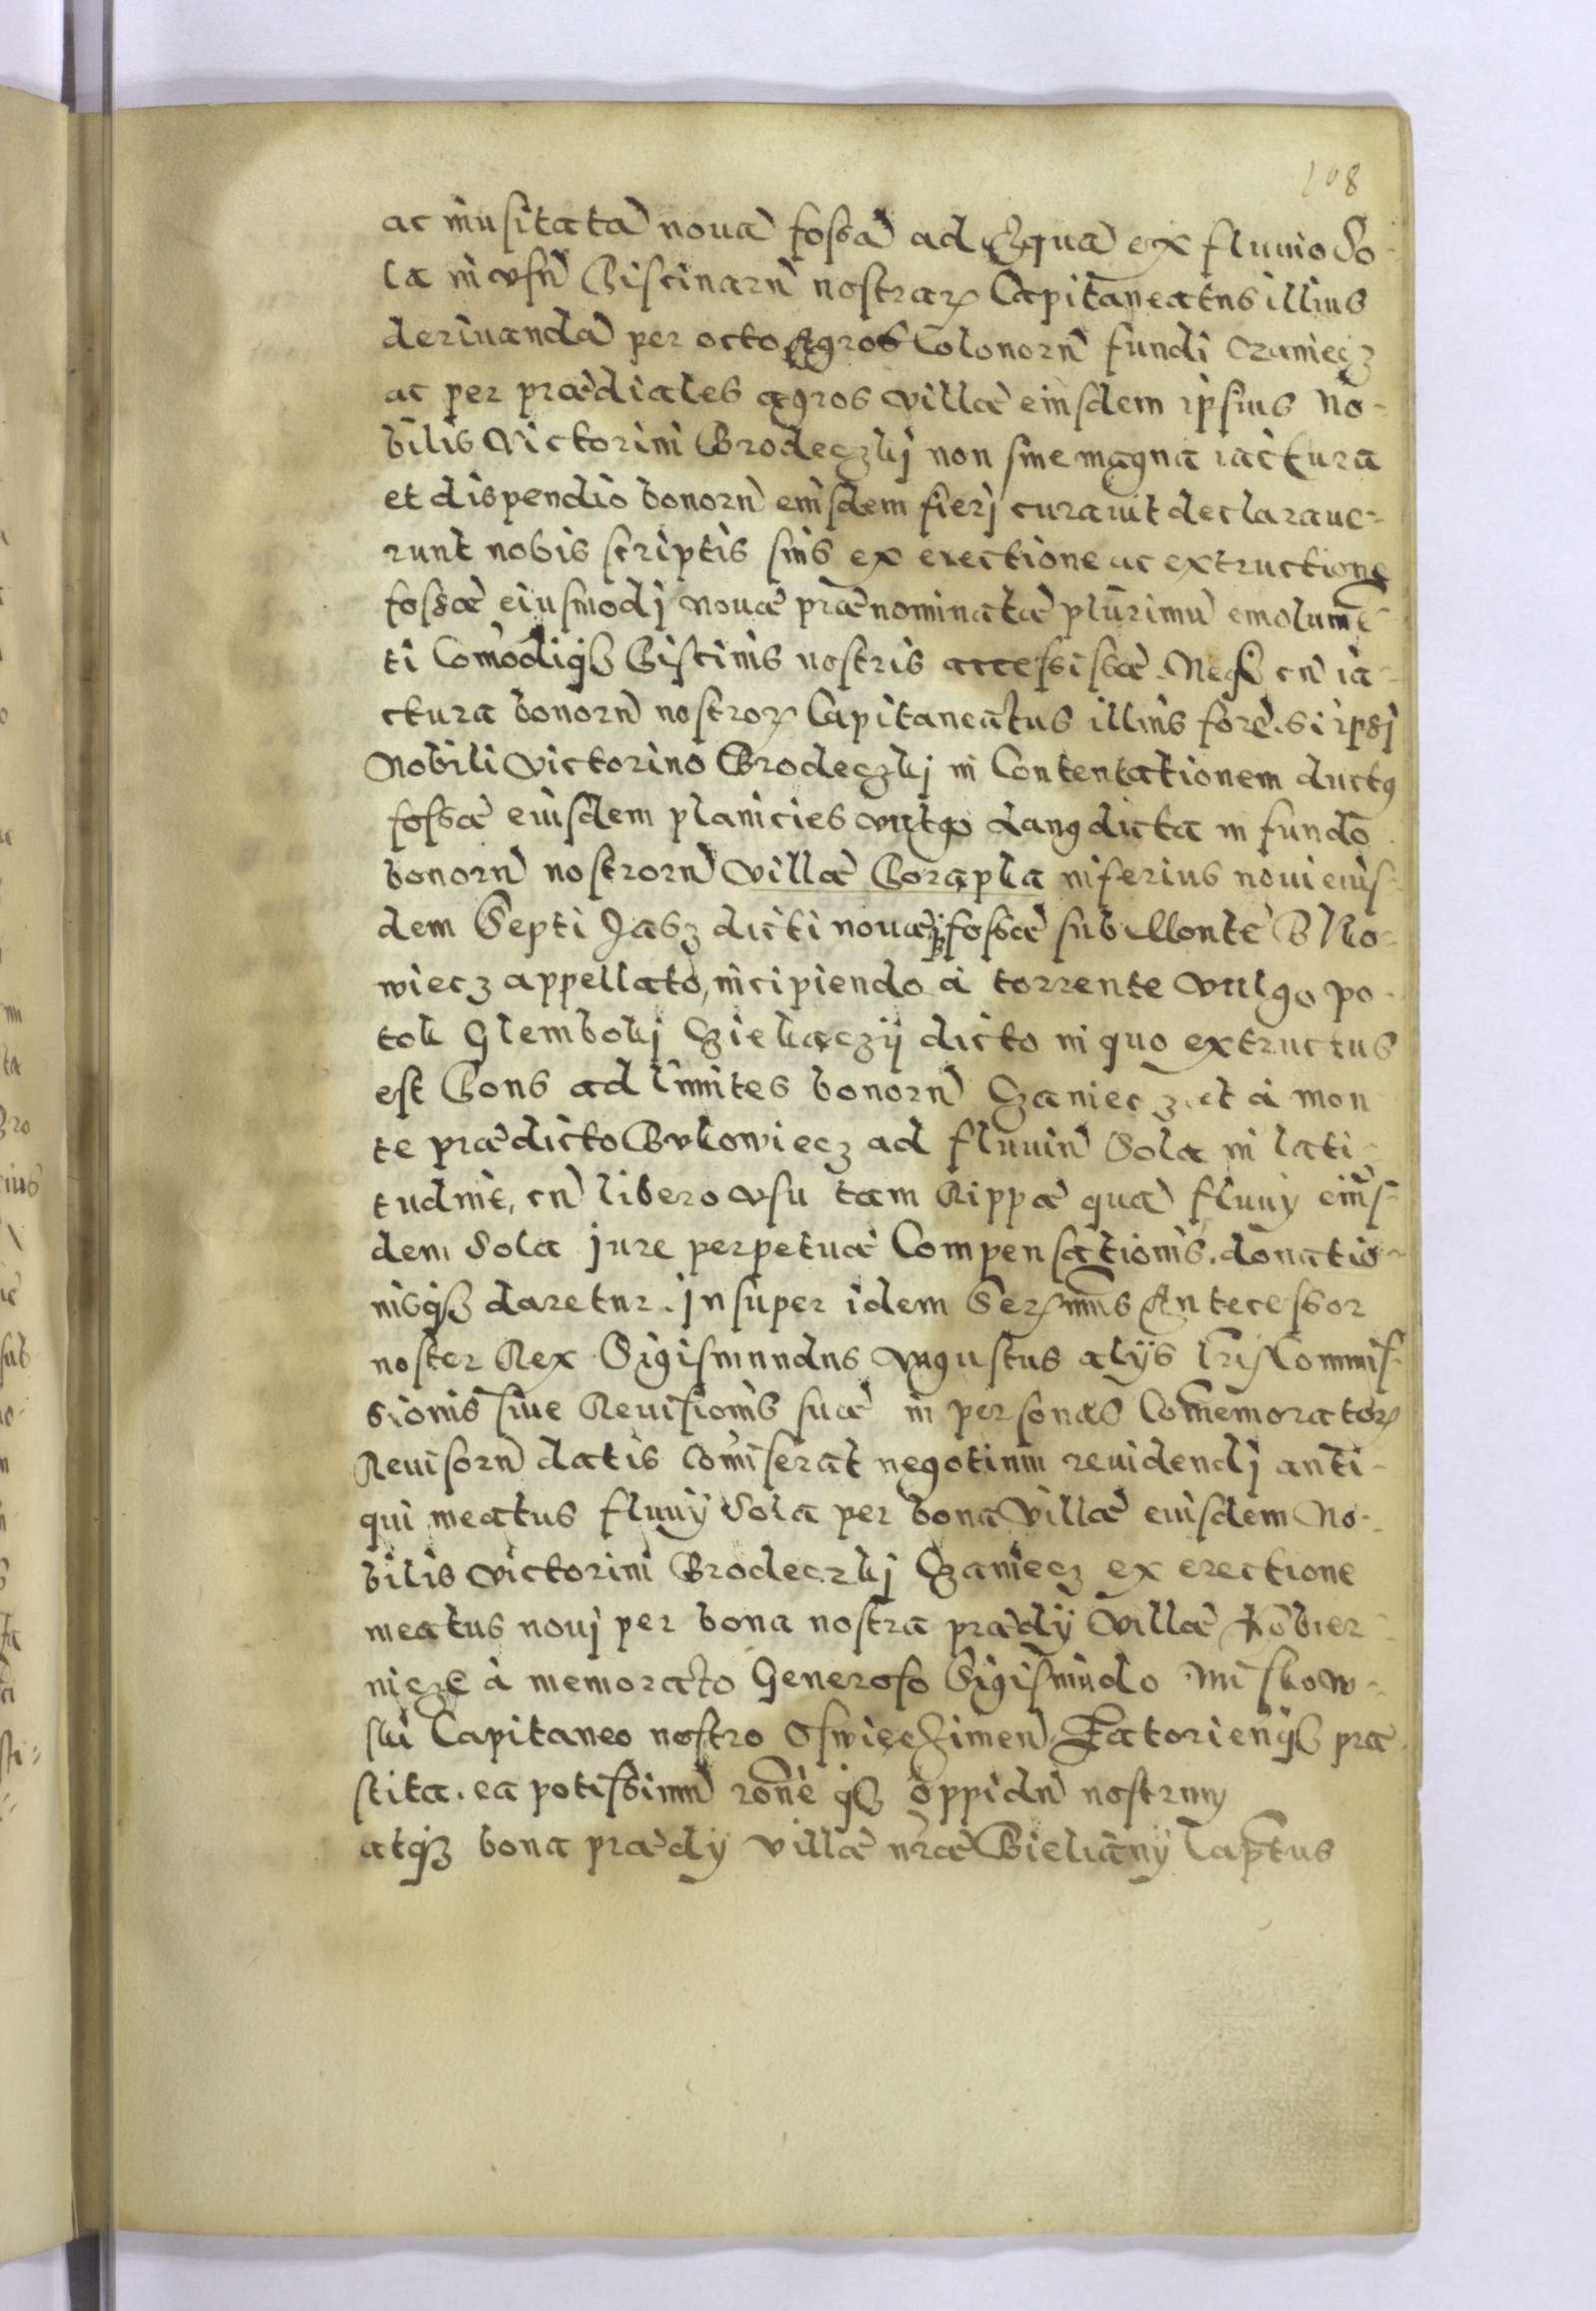 108
ac inusitatã nouã fossã ad Aquã ex fluuio So-
la in vsũ Piscinarũ nostrarꝝ Capitaneatus illius
deriuandã per octo Agros Colonorũ fundi Czaniecz
ac per prædiales agros villæ eiusdem ipsius No-
bilis Victorini Brodeczkj non sine magna iactura
et dispendio bonorũ eiusdem fierj curauit declaraue-
runt nobis scriptis suis ex erectione ac extructione
fossæ eiusmodj nouæ prænominatæ plurimũ emolumẽ-
ti Com̃odiqȝ Piscinis nostris accessisse. Neqȝ cũ ia-
ctura bonorũ nostrorꝝ Capitaneatus illius fore. si ipsj
Nobili Victorino Brodeczkj in Contentationem ductꝰ
fossæ eiusdem planicies vulgo Lang dicta in fundo
bonorũ nostrorũ villæ Porąpka inferius noui eius-
dem Septi Jasz dicti nouæqȝ fossæ sub Monte Bko-
wiecz appellato, incipiendo à torrente vulgo po-
tok Glembokj Czielączÿ dicto in quo extructus
est Pons ad limites bonorũ Czaniecz. et à mon
te prædicto Bukowiecz ad fluuiũ Sola in lati-
tudine, cũ libero vsu tam Rippæ quã fluuÿ eius-
dem Sola jure perpetuæ Compensationis. donatio-
nisqȝ daretur. jnsuper idem Serꝫmus Antecessor
noster Rex Sigismundus Augustus alÿs lr̃is Commis-
sionis siue Reuisionis suæ in personas Com̃emoratorꝝ
Reuisorũ datis Com̃iserat negotium reuidendj anti-
qui meatus fluuÿ Sola per bona Villæ eiusdem No-
bilis Victorini Brodeczkj Czaniecz ex erectione
meatus nouj per bona nostra prædÿ Villæ Kobier-
niczE à memorato Generoso Sigismũdo Miskow-
ski Capitaneo nostro Oswięczimen̄ Zatorien̄qȝ præ-
stita. ea potissimũ rõne qȝ oppidũ nostrum
atqȝ bona prædÿ villæ nr̃æ Bielianÿ Captus